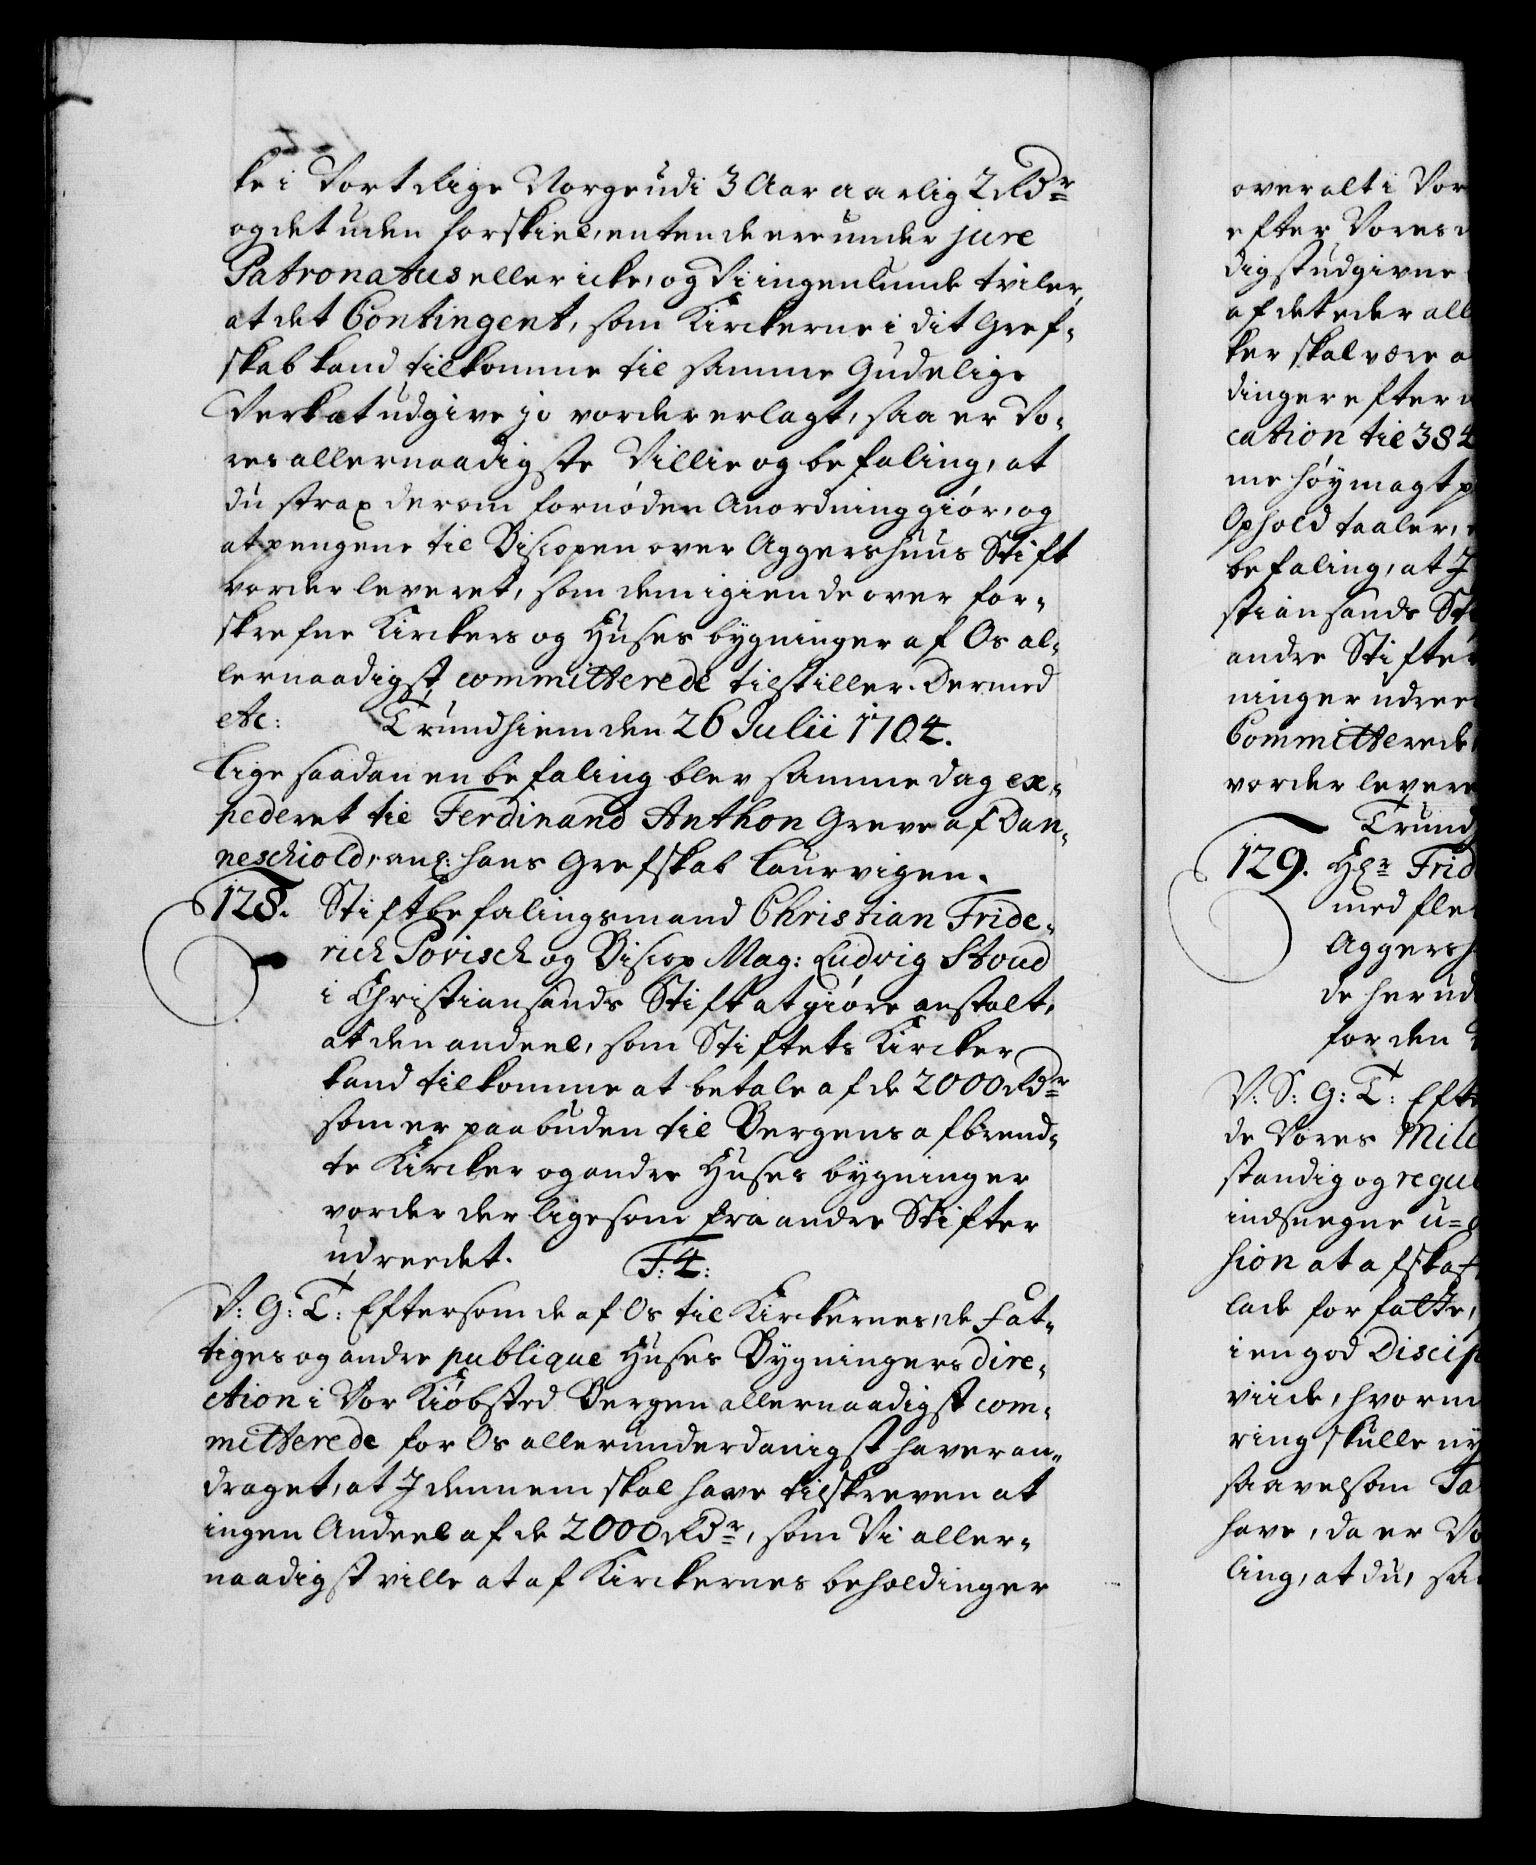 ke i Vort Rige Norge udi 3 Aar aarlig 2 Rdr
og det uden forskiel, enten de ere under jure
Patronatus eller icke, og Vi ingenlunde tviler,
at det Contingent, som Kirckerne i dit Gref-
skab kand tilkomme til samme Gudelige
Verk at udgive jo vorder erlagt, saa er Vo-
res allernaadigste Villie og befaling, at
du strax derom fornøden Anordning giør, og
at pengene til Biscopen over Aggershuus Stift
vorder leveret, som dem igien de over for-
skrefne Kirckers og Huses bygninger af Os al-
lernaadigst committerede tilstiller. Dermed
etc: Trundhiem den 26 Julii 1704.
Lige saadan en befaling blev samme dag ex-
pederet til Ferdinand Anthon Greve af Dan-
neschiold, anl: hans Grefskab Laurvigen.
128. Stiftbefalingsmand Christian Fride-
rich Povisch og Biscop Mag: Ludvig Stoud
i Christiansands Stift at giøre anstalt,
at den andeel, som Stiftets Kircker
kand tilkomme at betale af de 2000 Rdr
som er paabuden til Bergens afbrend-
te Kircker og andre Huses bygninger
vorder der ligesom fra andre Stifter
udreedet. F. 4:
V: G: T: Eftersom de af Os til Kirckernes, de Fat-
tiges og andre publique Huses Bygningers dire-
ction i Vor Kiøbsted Bergen allernaadigst com-
mitterede for Os allerunderdanigst haver an-
draget, at I dennem skal have tilskreven at
ingen Andeel af de 2000 Rdr, som Vi aller-
naadigst ville at af Kirckernes beholdinger
over alt i Vor
efter Vores
digst udgivne
af det eder all
ker skal være a
dinger efter
cation til 384
me høymagt p
Ophold taaler,
befaling, at I
stiansands Sti
andre Stifter
ninger udree
Committerede
vorder levere
Trund
129. Hr Frid
med fle
Aggersh
de her ud
for den
V: S: G: T: Eft
de Vores Mile
standig og regul
indsnegne u-
sion at afskaf
lade forfatte,
i en god Discip
viide, hvorm
ring skulle ny
saavelsom Ta
have, da er Vo
ling, at du, sa